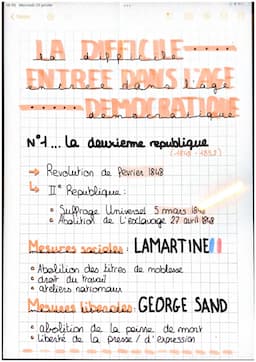 LA DIFFICILE
la difficile
ENTREE DANS L'AGE
entree dans l'age
DEMOCRATIQUE
democratique
N°1... La deuxieme republique
(1848-1852)
→ Revolution de fevrier 1848
↳ IIe Republique :
• Suffrage Universel 5 mars 1848
• Abolition de l'esclavage 27 avril 848
Mesures sociales : LAMARTINE
• Abolition des titres de noblesse
• droit du travail
• ateliers nationaux
Mesures liberales : GEORGE SAND
• abolition de la peine de mort
• liberté de la presse / d'expression